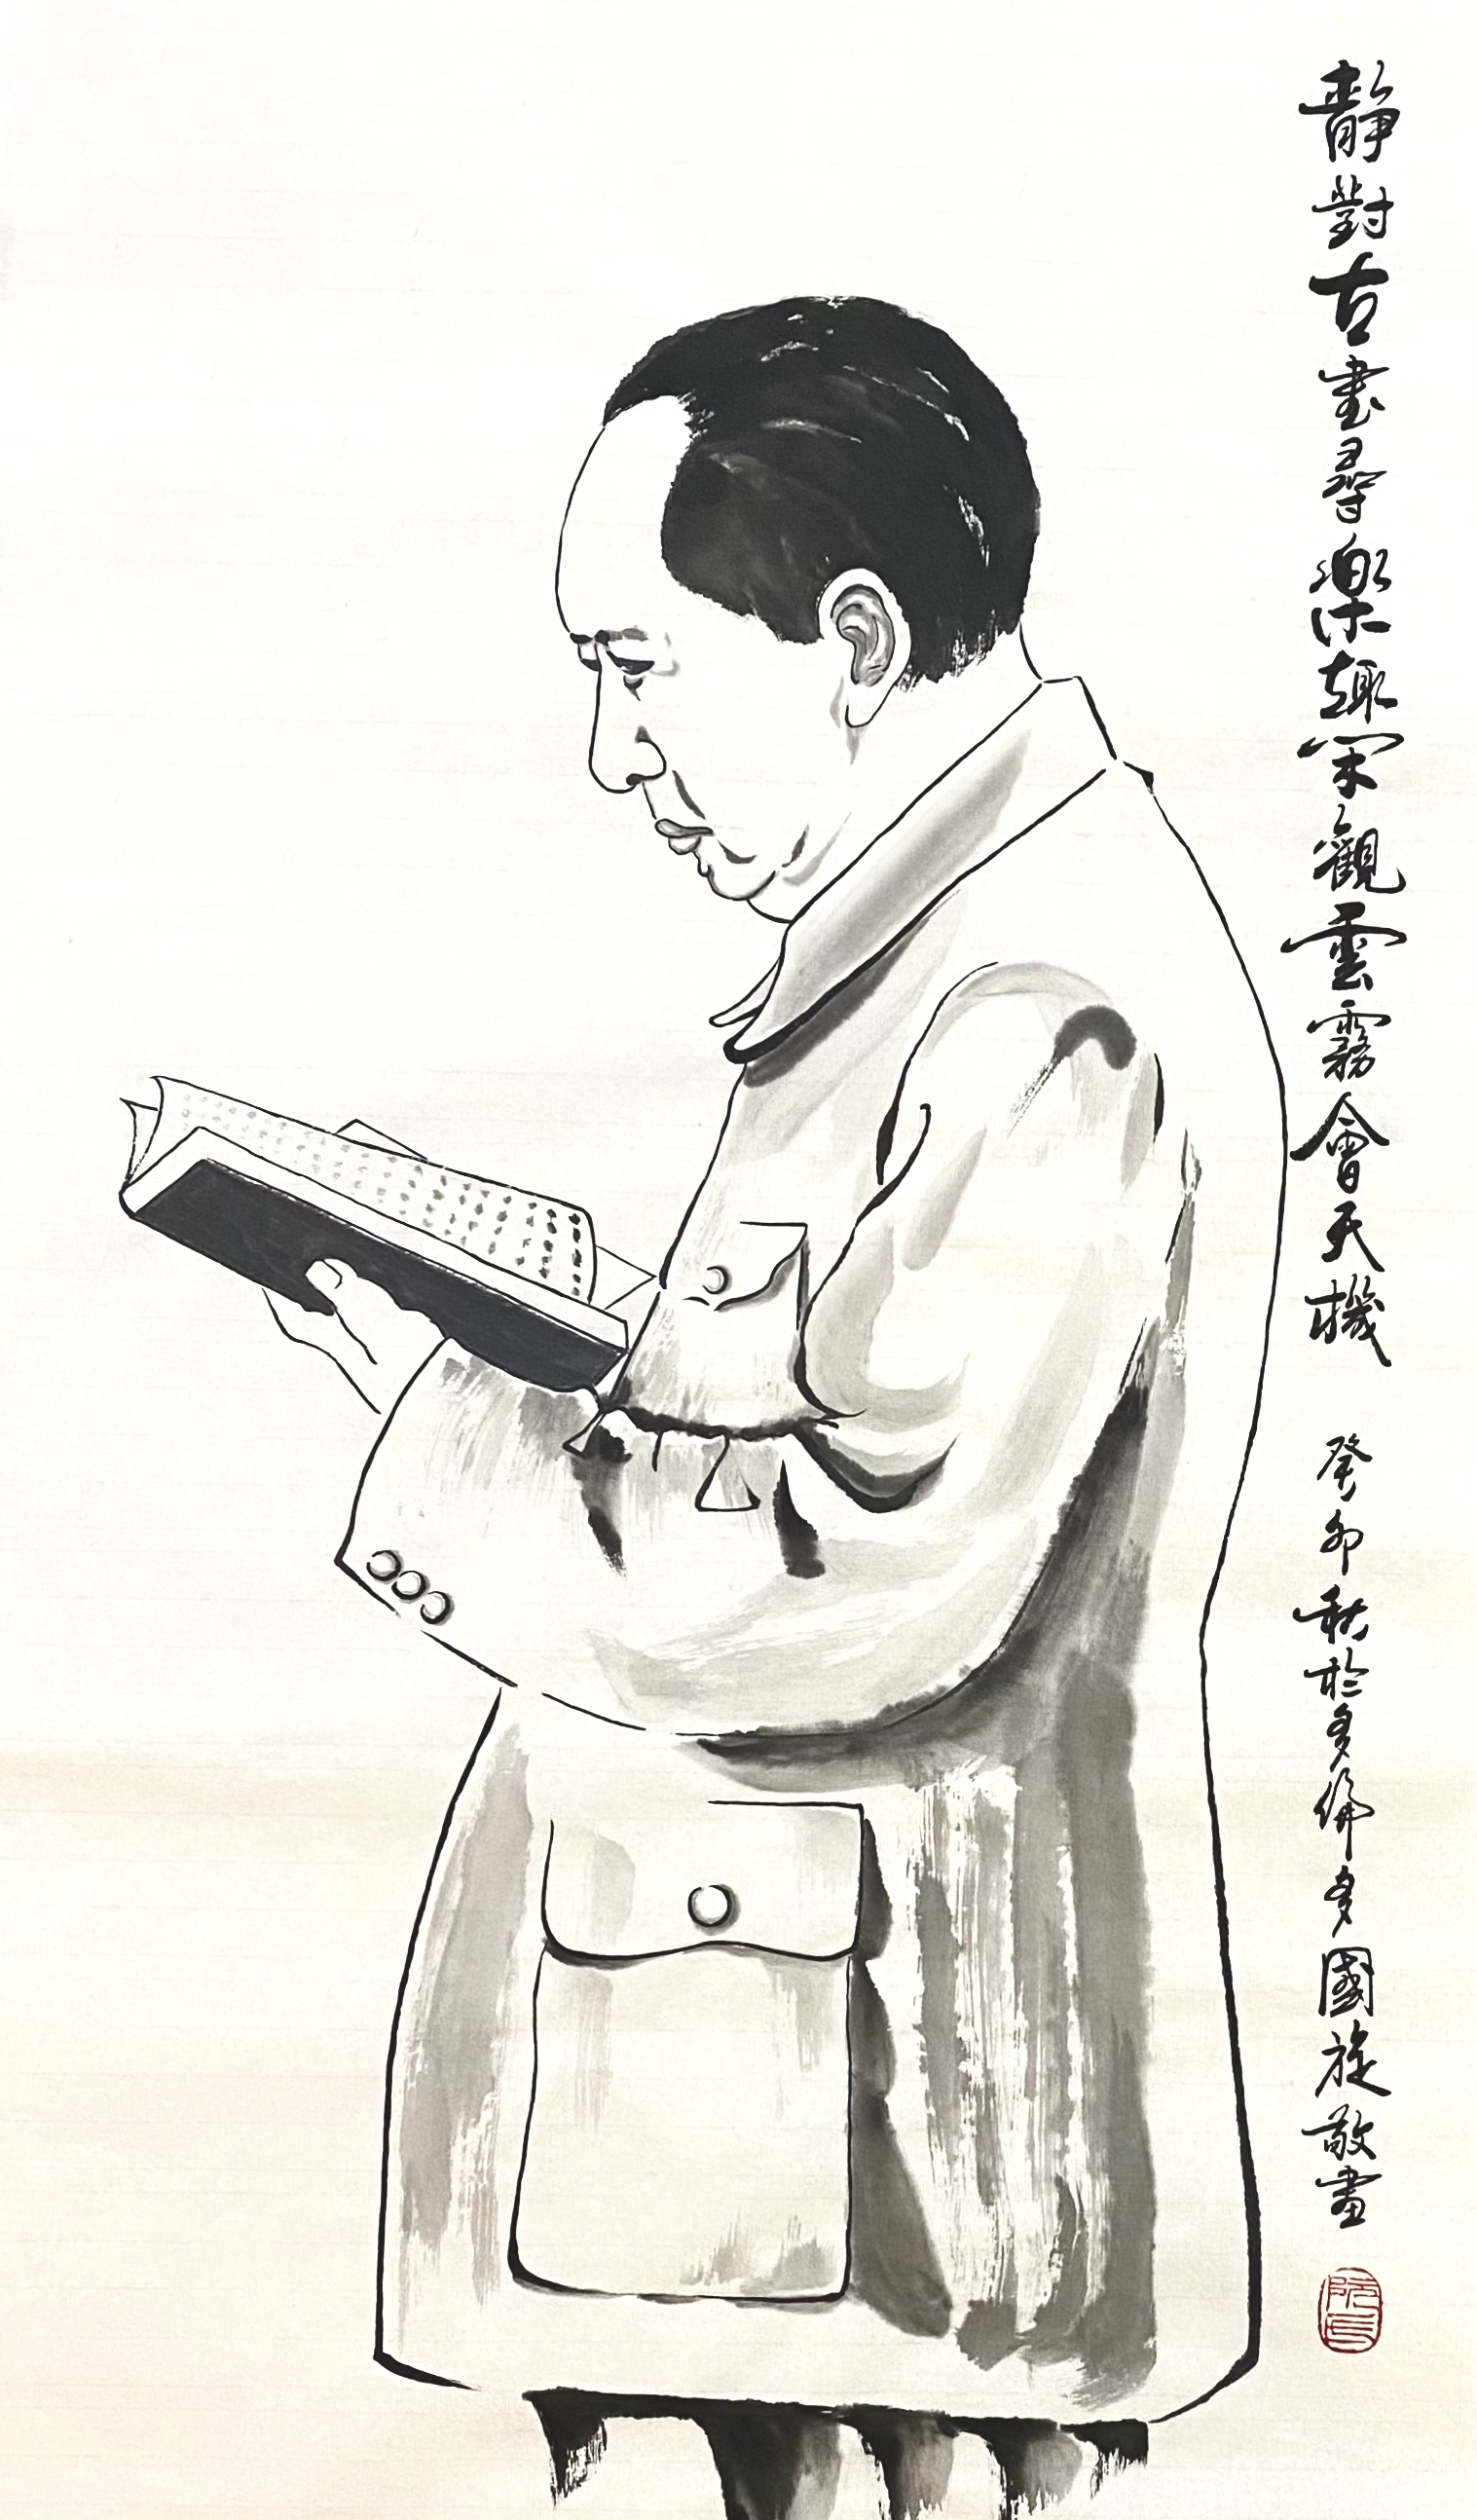 靜對古書尋樂趣閑觀雲霧會天機
癸卯秋於多倫多國旋敬畫